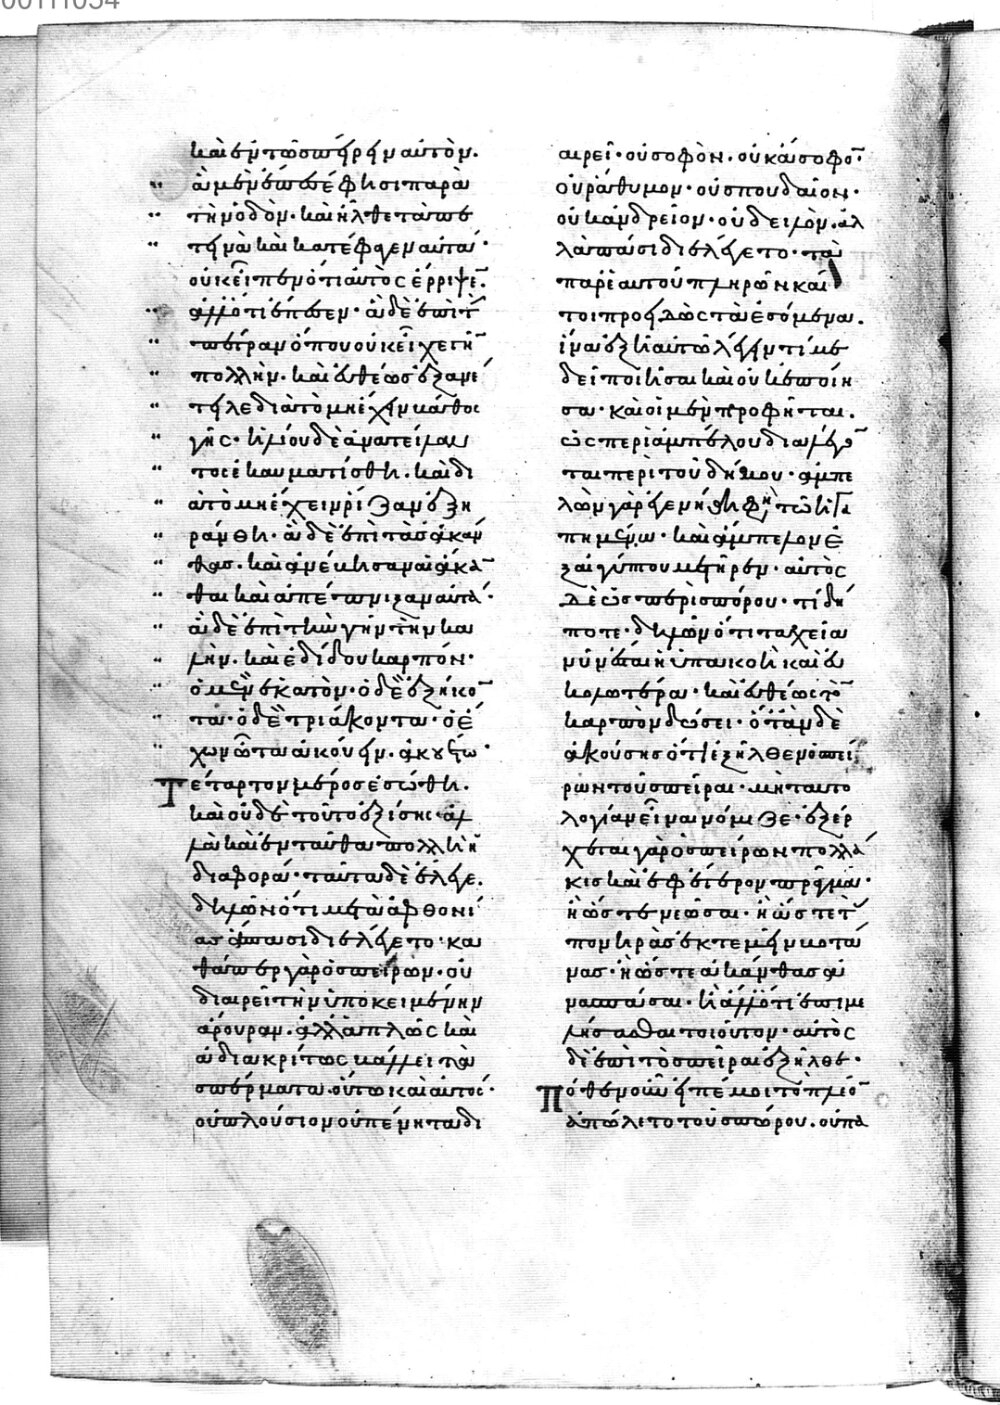 00111054
καὶ ἐν τῷ σπείρειν αὐτὸν.
ἃ μὲν ἔπεσέ φησι παρὰ
τὴν ὁδὸν. καὶ ἦλθε τὰ πε
τεινὰ καὶ κατέφαγεν αὐτά.
οὐκ εἶπεν ὅτι αὐτὸς ἔρριψε̄.
ἀλλ' ὅτι ἔπεσεν. ἃ δὲ ἐπὶ τ̄
πέτραν ὅπου οὐκ εἶχε γῆ̄
πολλὴν. καὶ εὐθέως ἐξανέ
τειλε διὰ τὸ μὴ ἔχειν βάθος
γῆς. ἡλίου δὲ ἀνατείλαν
τος ἐκαυματίσθη. καὶ δι
ὰ τὸ μὴ ἔχειν ῥίζαν ἐξη
ράνθη. ἃ δὲ ἐπὶ τὰς ἀκάν
θας. καὶ ἀνέβησαν αἱ ἄκᾱ
θαι καὶ ἀπέπνιξαν αὐτά.
ἃ δὲ ἐπὶ τὴν γῆν τὴν κα
λὴν. καὶ ἐδίδου καρπόν.
ὃ μὲν ἑκατὸν. ὃ δὲ ἑξήκο̄
τα. ὃ δὲ τριάκοντα. ὁ ἔ
χων ὦτα ἀκούειν. ἀκουέτω.
Τέταρτον μέρος ἐσώθη.
καὶ οὐδὲ τοῦτο ἐξίσης. ἀλ
λὰ καὶ ἐνταῦθα πολλὴ ἡ
διαφορά. ταῦτα δὲ ἔλεγε.
δηλῶν ὅτι μετὰ ἀφθονί
ας ἅπασι διελέγετο. κα
θάπερ γὰρ ὁ σπείρων. οὐ
διαιρεῖ τὴν ὑποκειμένην
ἄρουραν. ἀλλ' ἁπλῶς καὶ
ἀδιακρίτως βάλλει τὰ
σπέρματα. οὕτω καὶ αὐτός.
οὐ πλούσιον οὐ πένητα δι
αιρεῖ. οὐ σοφὸν. οὐκ ἄσοφο̄.
οὐ ῥάθυμον. οὐ σπουδαῖον.
οὐκ ἀνδρεῖον. οὐ δειλὸν. ἀλ
λὰ πᾶσι διελέγετο. τὰ
παρ' ἑαυτοῦ πληρῶν καί
τοι προειδὼς τὰ ἐσόμενα.
ἵνα ἐξῆ αὐτῷ λέγειν τί με
δεῖ ποιῆσαι καὶ οὐκ ἐποίη
σα. καὶ οἱ μὲν προφῆται.
ὡς περὶ ἀμπέλου διαλέγο̄
ται περὶ τοῦ δήμου. ἀμπε
λὼν γὰρ ἐγενήθη φη τῷ ἠγα
πημένῳ. καὶ ἄμπελον ἐ
ξ αἰγύπτου μετῆρεν. αὐτὸς
δὲ ὡς περὶ σπόρου. τί δή
ποτε. δηλῶν ὅτι ταχεῖα
νῦν ἔσται ἡ ὑπακοὴ καὶ εὐ
κολωτέρα. καὶ εὐθέως τὸ̄
καρπὸν δώσει. ὅταν δὲ
ἀκούσῃς ὅτι ἐξῆλθεν ὁ σπεί
ρων τοῦ σπεῖραι. μὴ ταυτο
λογίαν εἶναι νόμιζε. ἐξέρ
χεται γὰρ ὁ σπείρων πολλά
κις καὶ ἐφ' ἕτερον πρᾶγμα.
ἢ ὥστε νεῶσαι. ἢ ὥστε τὰς
πονηρὰς ἐκτεμεῖν βοτά
νας. ἢ ὥστε ἀκάνθας ἀ
νασπάσαι. ἢ ἄλλό τι ἐπιμε
λήσασθαι τοιοῦτον. αὐτὸς
δὲ ἐπὶ τὸ σπεῖραι ἐξῆλθε.
Πόθεν οὖν εἰπέ μοι τὸ πλέο̄
ἀπώλετο τοῦ σπόρου. οὐ πα